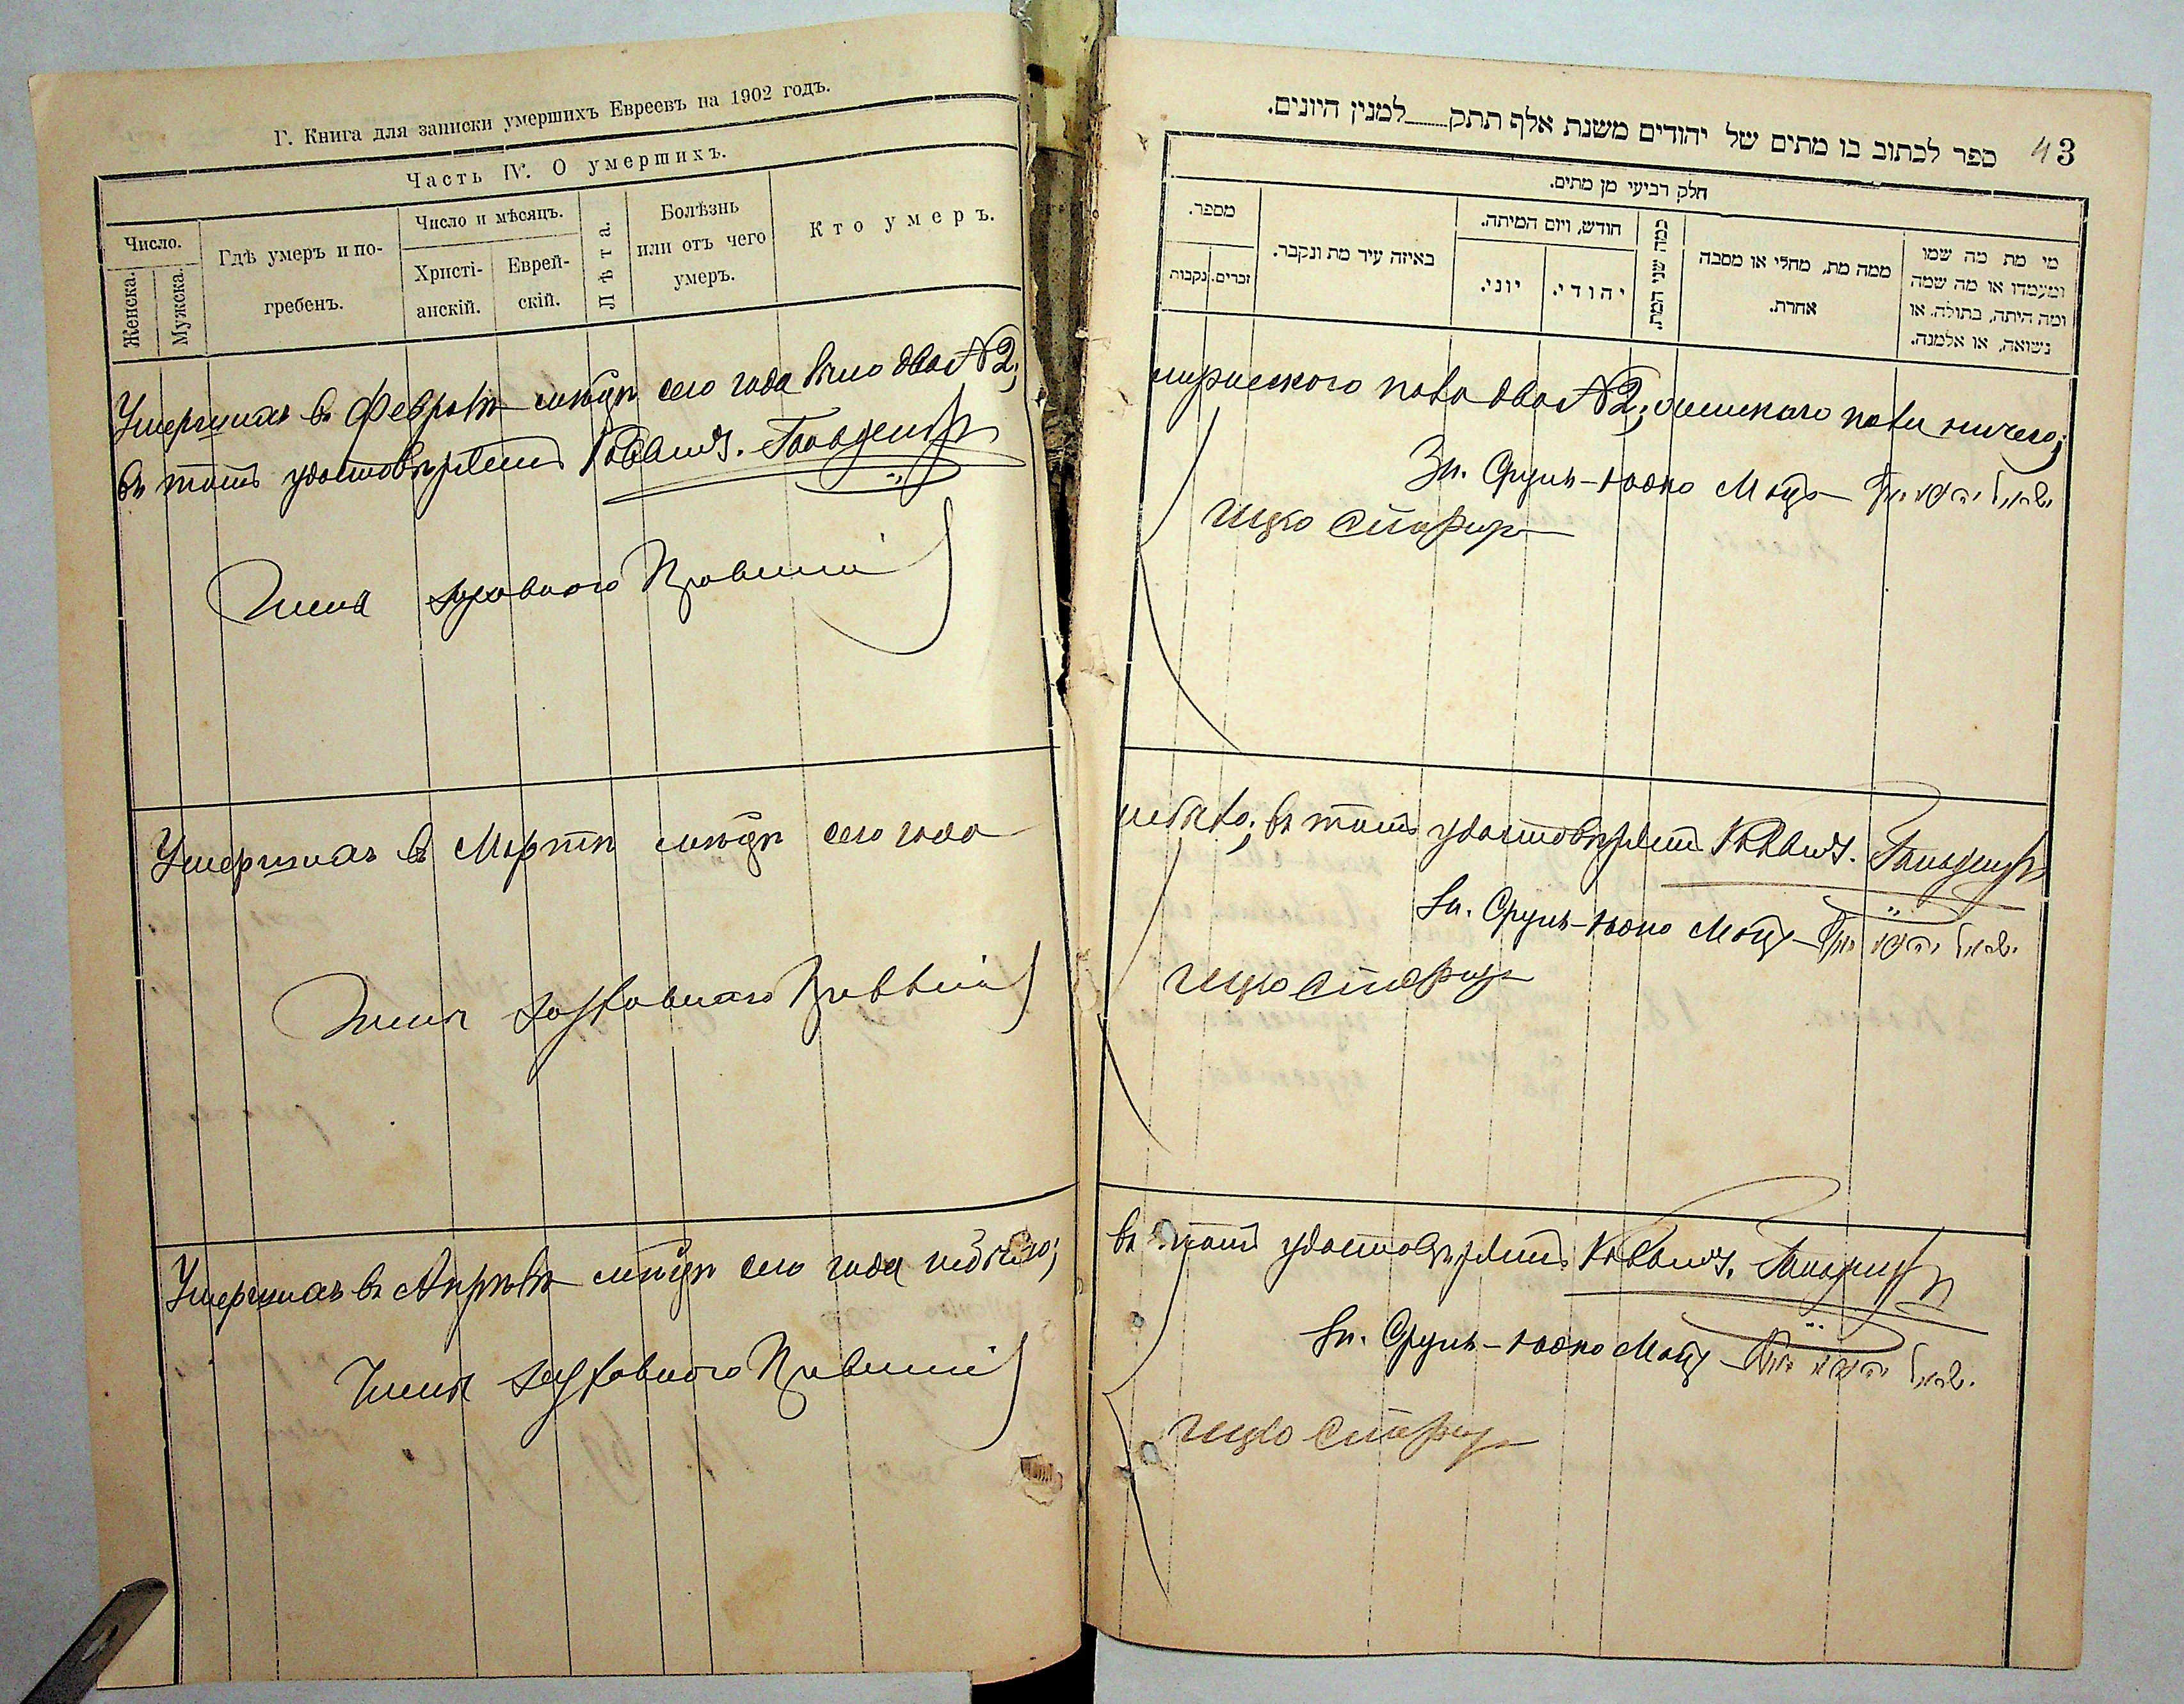 Г. Книга для записки умершихъ Евреевъ на 1902 годъ.
Часть IV. О умершихъ.
Число.
Женска.
Мужска.
Гдѣ умеръ и по-
гребенъ.
Число и мѣсяцъ.
Христі-
анскій.
Еврей-
скій.
Лѣта.
Болѣзнь
или отъ чего
умеръ.
Кто умеръ.
Умершихъ въ Февралѣ мѣсяцѣ сего года было два №2;
въ томъ удостовѣряемъ Раввинъ.
Члены духовнаго Правленія
Умершихъ въ Мартѣ мѣсяцѣ сего года
Члены духовнаго Правленія
Умершихъ въ Апрѣлѣ мѣсяцѣ сего года небыло;
Члены духовнаго Правленія
43
ספר לכתוב בו מתים של יהודים משנת אלף תתק___למנין היונים.
חלק רביעי מן מתים.
מספר.
זכרים.
נקבות
באיזה עיר מת ונקבר.
חודש, ויום המיתה.
יוני.
יהודי.
כמה שני המת.
ממה מת, מחלי או מסבה
אחרת.
מי מת מה שמו
ומעמדו או מה שמה
ומה היתה, בתולה. או
נשואה, או אלמנה.
мужескаго пола два №2; женскаго пола ничего;
Сруль-
Ицко
небыло; въ томъ удостовѣряемъ Раввинъ.
Сруль-
Ицко
въ томъ удостовѣряемъ Раввинъ.
Сруль-
Ицко